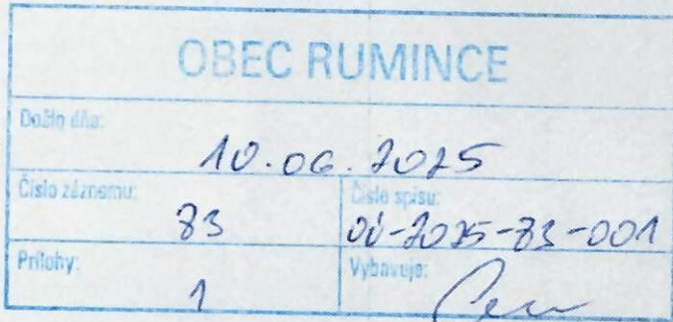 OBEC RUMINCE
Došlo dňa:
10.06.2025
Číslo záznamu:
83
Číslo spisu:
OÚ-2025-83-001
Prílohy:
1
Vybavuje: